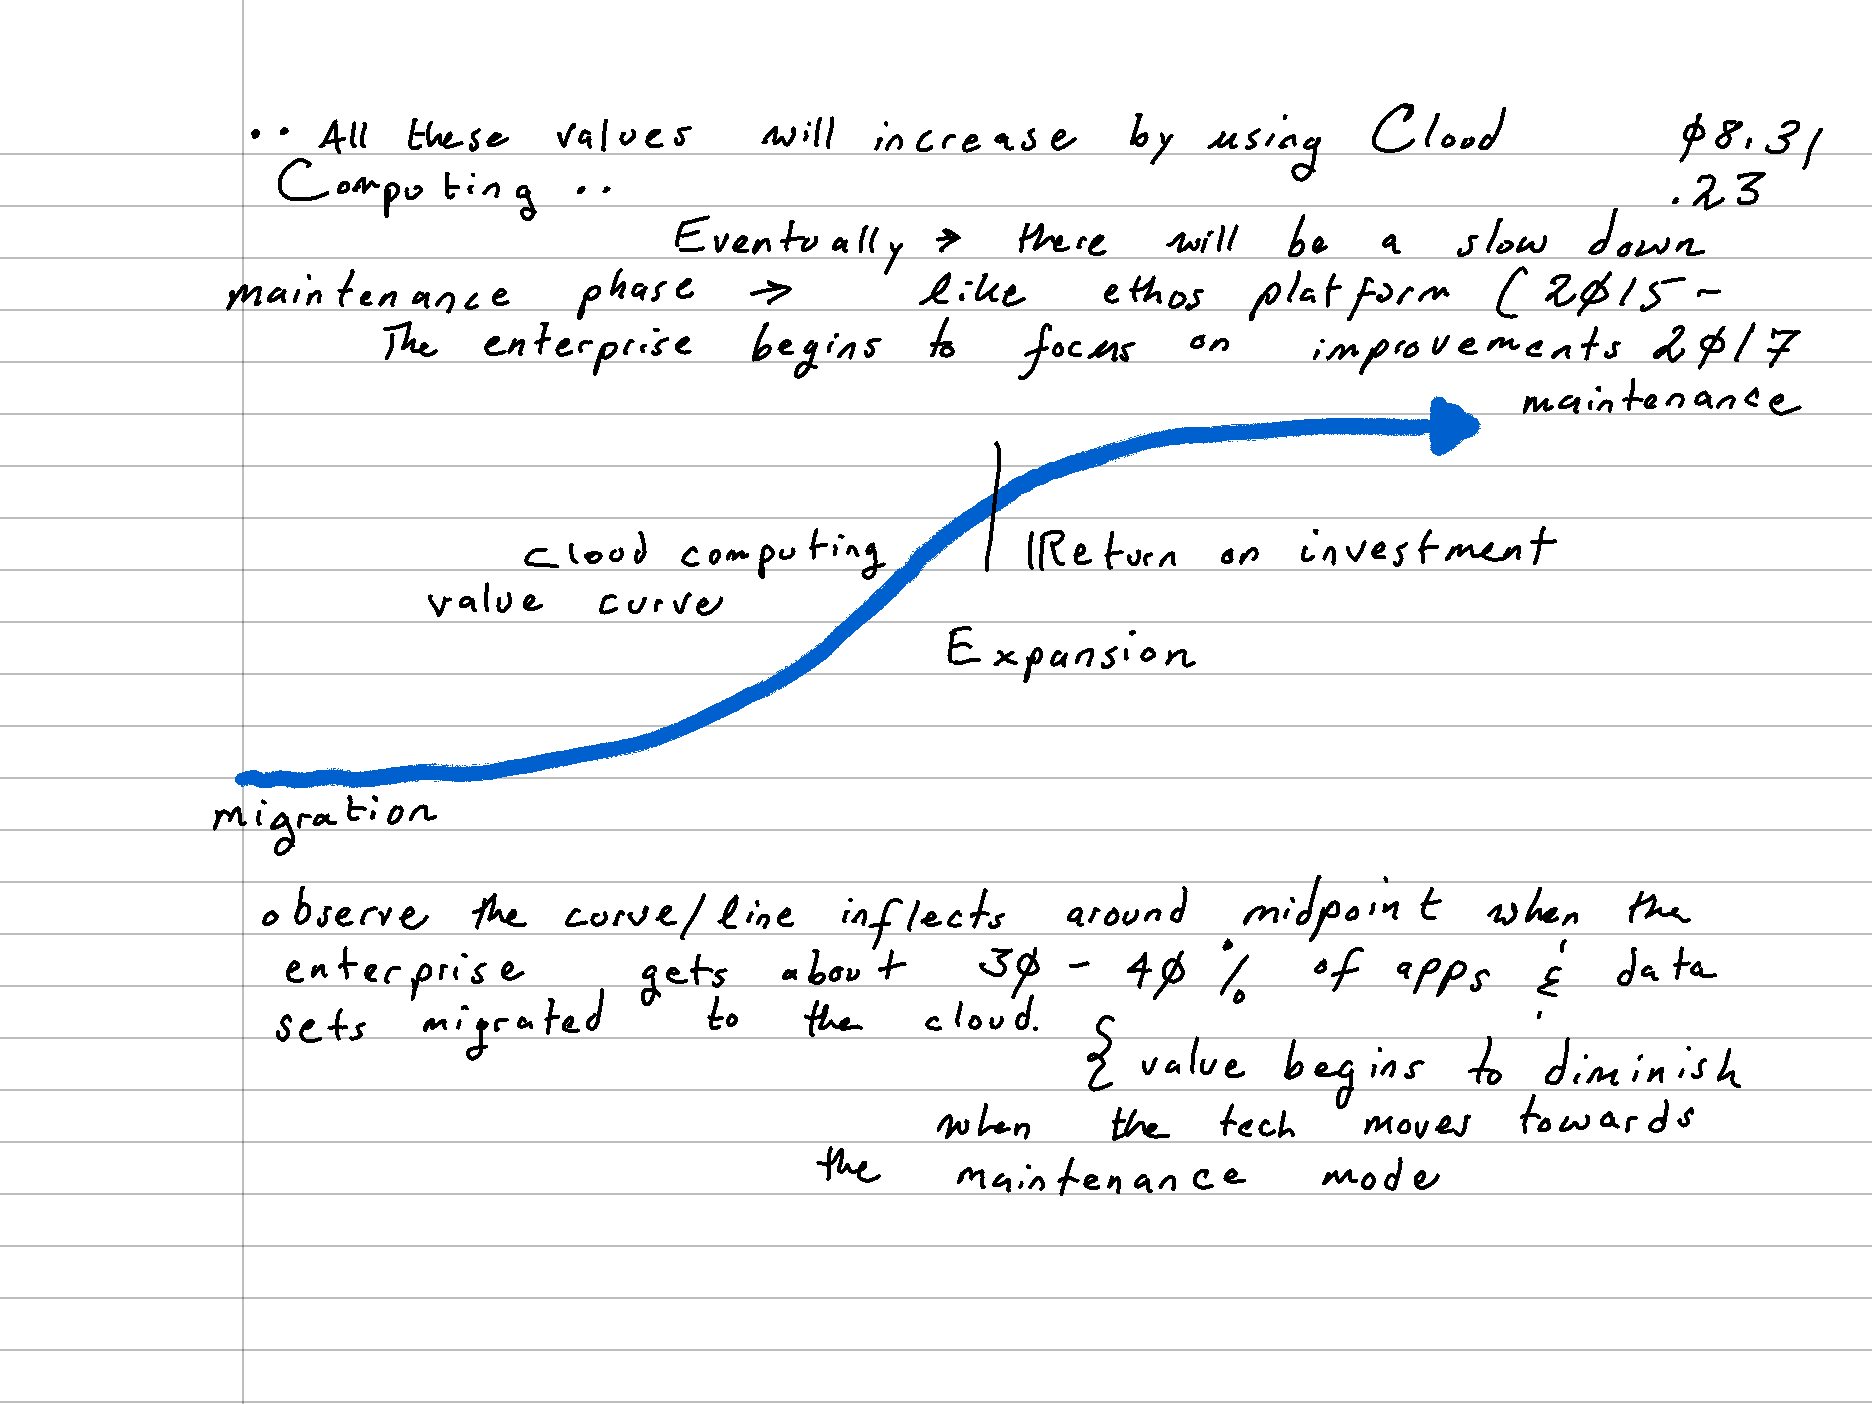 ·· All these values will increase by using Cloud ø8.31
Computing ·· .23
Eventually → there will be a slow down
maintenance phase → like ethos platform (2ø15 -
The enterprise begins to focus on improvements 2ø17
maintenance
cloud computing
value curve
Return on investment
Expansion
migration
observe the curve/line inflects around midpoint when the
enterprise gets about 3ø - 4ø % of apps & data
sets migrated to the cloud.
{ value begins to diminish
when the tech moves towards
the maintenance mode